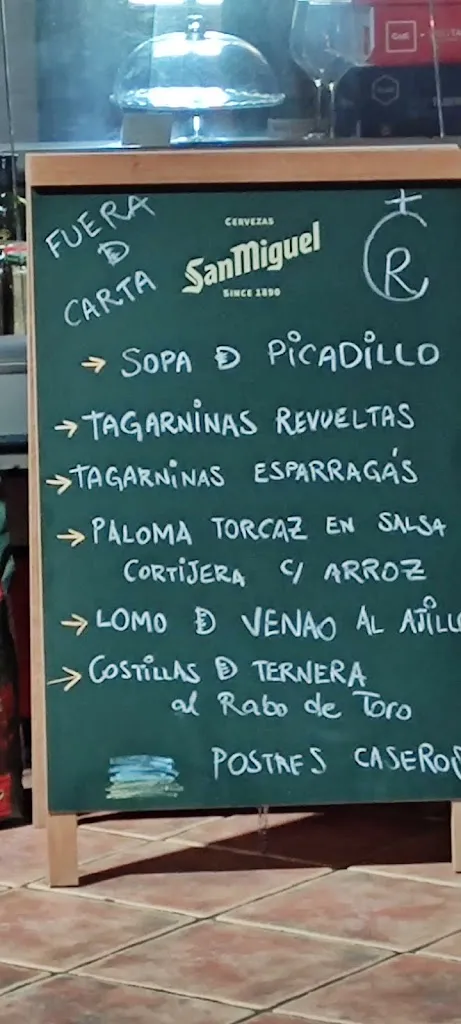 FUERA
D
CARTA
CERVEZAS
SanMiguel
SINCE 1890
R
→ SOPA D PICADILLO
→ TAGARNINAS REVUELTAS
→ TAGARNINAS ESPARRAGÁS
→ PALOMA TORCAZ EN SALSA
CORTIJERA C/ ARROZ
→ LOMO D VENAO AL AJILL
→ COSTILLAS D TERNERA
al Rabo de Toro
POSTRES CASEROS